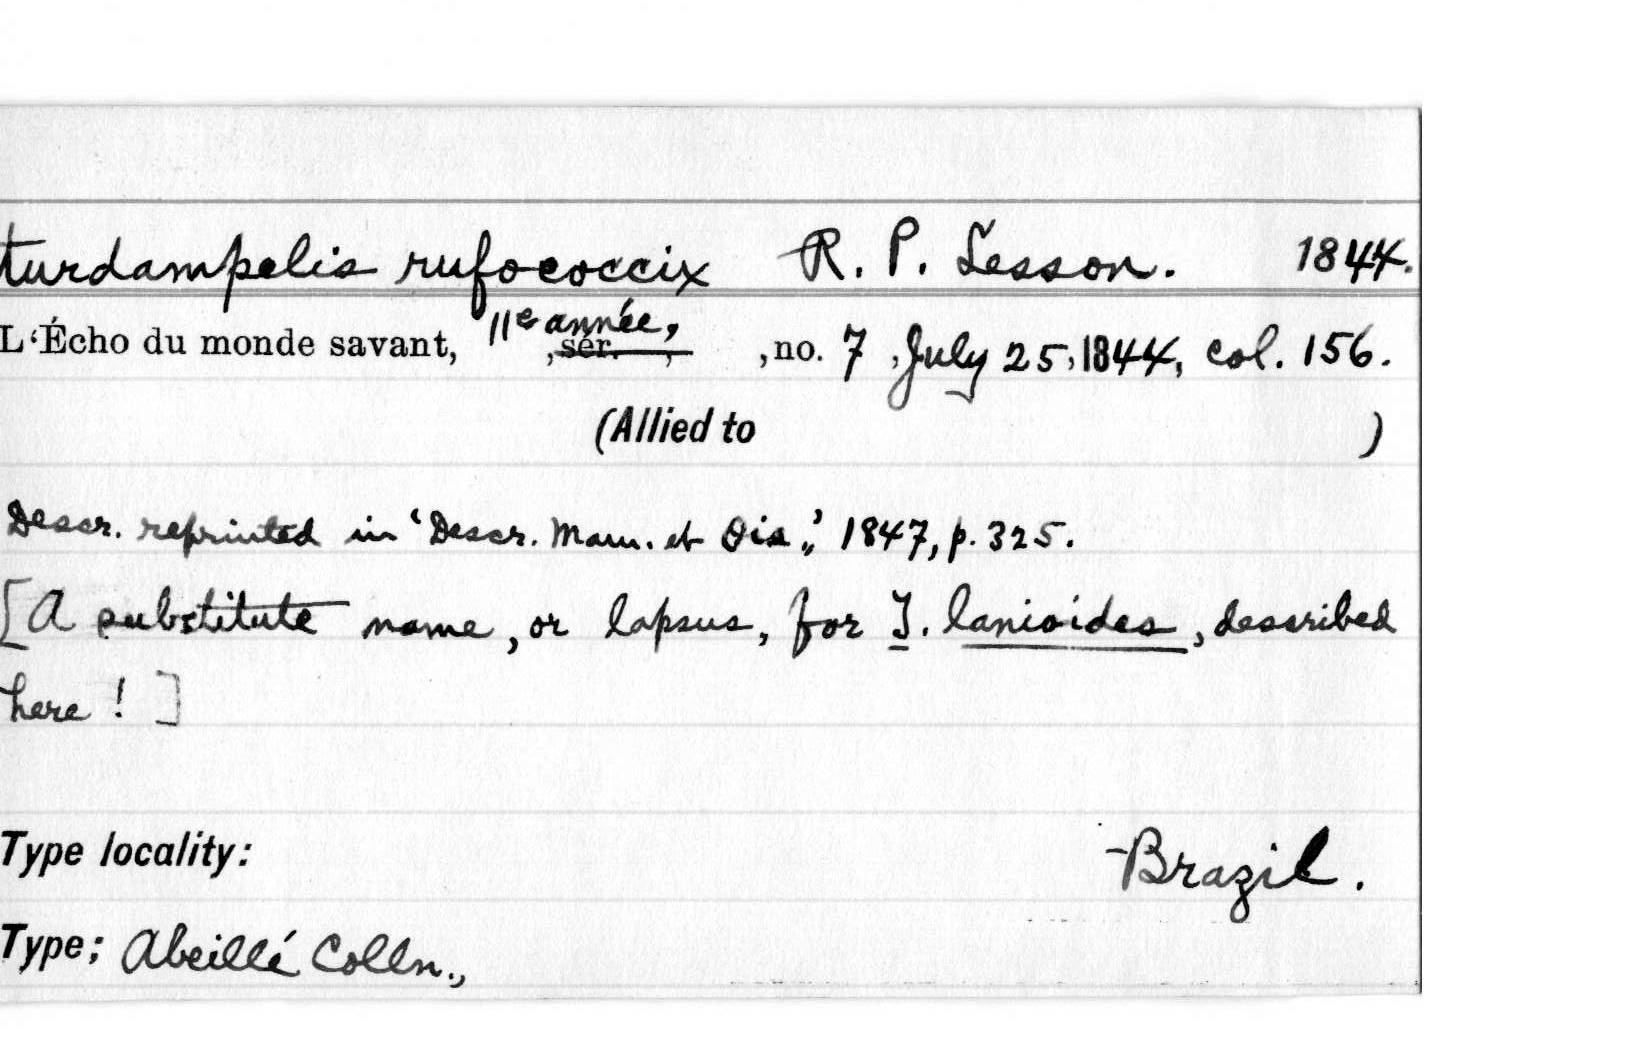 turdampelis rufococcix R. P. Lesson. 1844.
L'Écho du monde savant, 11e année, ,sér. , ,no. 7 ,July 25,1844, col. 156.
(Allied to )
Descr. reprinted in 'Descr. Mam. et Ois.,' 1847, p. 325.
[A substitute name, or lapsus, for T. lanioides, described
here ! ]
Type locality: Brazil.
Type; Abeillé Colln.,